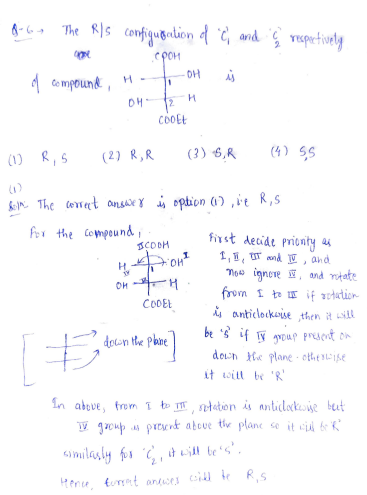 Q-6 → The R/S configuration of 'C₁' and 'C₂' respectively
are
COOH
of compound, H OH is
1
OH 2 H
COOEt
(1) R, S (2) R, R (3) S, R (4) S, S
(1)
Sol<sup>n</sup>. The correct answer is option (1), i.e R, S
For the compound,
III COOH
H OH I
IV
OH H
COOEt
First decide priority as
I, II, III and IV, and
now ignore IV, and rotate
from I to III if rotation
is anticlockwise, then it will
be 'S' if IV group present on
down the plane. otherwise
it will be 'R'
down the plane
In above, from I to III, rotation is anticlockwise but
IV group is present above the plane so it will be 'R'
similarly for 'C₂', it will be 'S'.
Hence, correct answer will be R, S